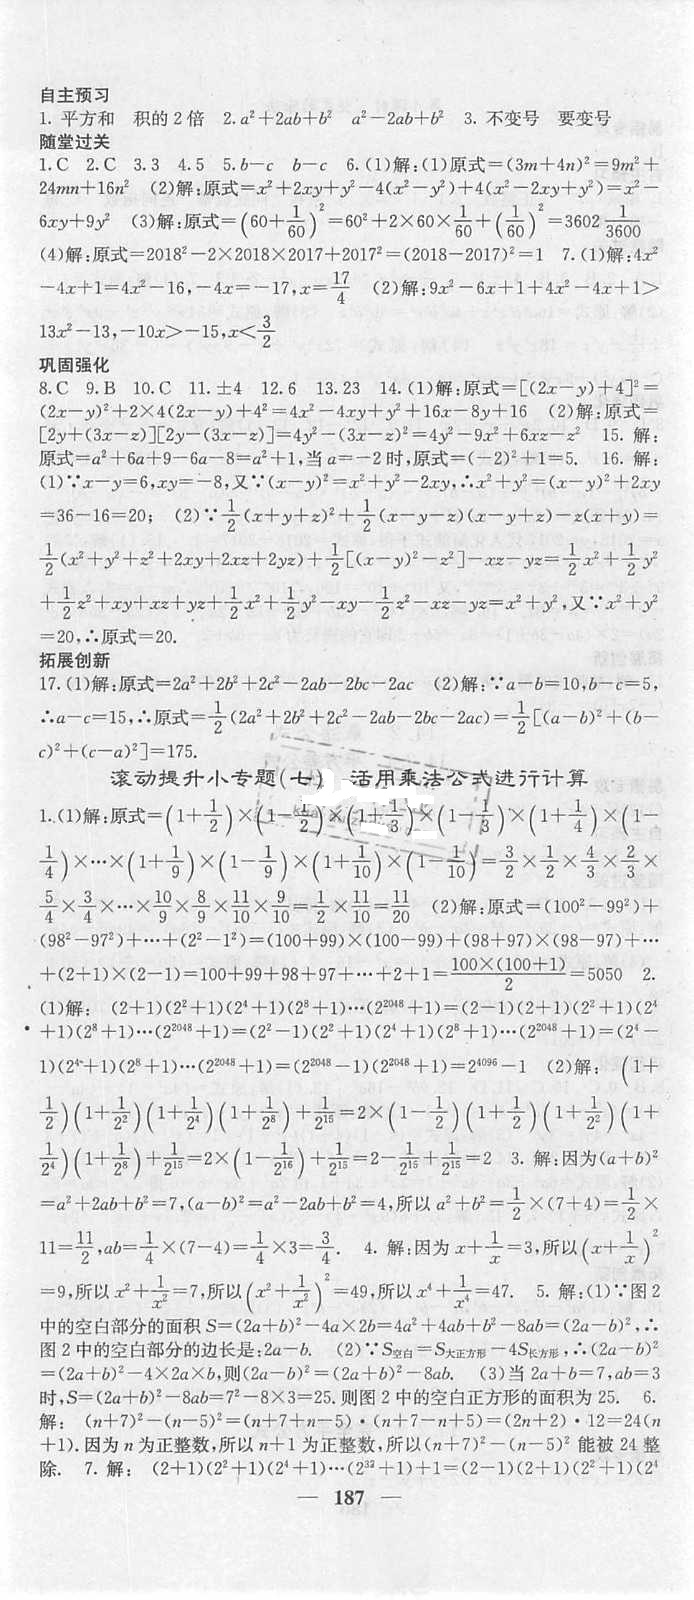 自主预习
1. 平方和　积的2倍　2. a²+2ab+b²　a²-2ab+b²　3. 不变号　要变号
随堂过关
1.C　2.C　3.3　4.5　5.b-c　b-c　6.(1)解:(1)原式=(3m+4n)²=9m²+
24mn+16n²　(2)解:原式=x²+2xy+y²-4(x²-y²)+4(x²-2xy+y²)=x²-
6xy+9y²　(3)解:原式=(60+1/60)²=60²+2×60×1/60+(1/60)²=3602 1/3600
(4)解:原式=2018²-2×2018×2017+2017²=(2018-2017)²=1　7.(1)解:4x²
-4x+1=4x²-16,-4x=-17,x=17/4　(2)解:9x²-6x+1+4x²-4x+1>
13x²-13,-10x>-15,x<3/2
巩固强化
8.C　9.B　10.C　11.±4　12.6　13.23　14.(1)解:原式=[(2x-y)+4]²=
(2x-y)²+2×4(2x-y)+4²=4x²-4xy+y²+16x-8y+16　(2)解:原式=
[2y+(3x-z)][2y-(3x-z)]=4y²-(3x-z)²=4y²-9x²+6xz-z²　15. 解:
原式=a²+6a+9-6a-8=a²+1,当a=-2时,原式=(-2)²+1=5.　16. 解:
(1)∵x-y=6,xy=-8,又∵(x-y)²=x²+y²-2xy,∴x²+y²=(x-y)²+2xy
=36-16=20;　(2)∵1/2(x+y+z)²+1/2(x-y-z)(x-y+z)-z(x+y)=
1/2(x²+y²+z²+2xy+2xz+2yz)+1/2[(x-y)²-z²]-xz-yz=1/2x²+1/2y²
+1/2z²+xy+xz+yz+1/2x²+1/2y²-xy-1/2z²-xz-yz=x²+y²,又∵x²+y²
=20,∴原式=20.
拓展创新
17.(1)解:原式=2a²+2b²+2c²-2ab-2bc-2ac　(2)解:∵a-b=10,b-c=5,
∴a-c=15,∴原式=1/2(2a²+2b²+2c²-2ab-2bc-2ac)=1/2[(a-b)²+(b-
c)²+(c-a)²]=175.
滚动提升小专题(七)　活用乘法公式进行计算
1.(1)解:原式=(1+1/2)×(1-1/2)×(1+1/3)×(1-1/3)×(1+1/4)×(1-
1/4)×…×(1+1/9)×(1-1/9)×(1+1/10)×(1-1/10)=3/2×1/2×4/3×2/3×
5/4×3/4×…×10/9×8/9×11/10×9/10=1/2×11/10=11/20　(2)解:原式=(100²-99²)+
(98²-97²)+…+(2²-1²)=(100+99)×(100-99)+(98+97)×(98-97)+…
+(2+1)×(2-1)=100+99+98+97+…+2+1=100×(100+1)/2=5050　2.
(1)解:　(2+1)(2²+1)(2⁴+1)(2⁸+1)…(2²⁰⁴⁸+1)=(2-1)(2+1)(2²+1)(2⁴
+1)(2⁸+1)…(2²⁰⁴⁸+1)=(2²-1)(2²+1)(2⁴+1)(2⁸+1)…(2²⁰⁴⁸+1)=(2⁴-
1)(2⁴+1)(2⁸+1)…(2²⁰⁴⁸+1)=(2²⁰⁴⁸-1)(2²⁰⁴⁸+1)=2⁴⁰⁹⁶-1　(2)解:　(1+
1/2)(1+1/2²)(1+1/2⁴)(1+1/2⁸)+1/2¹⁵=2×(1-1/2)(1+1/2)(1+1/2²)(1+
1/2⁴)(1+1/2⁸)+1/2¹⁵=2×(1-1/2¹⁶)+1/2¹⁵=2-1/2¹⁵+1/2¹⁵=2　3. 解:因为(a+b)²
=a²+2ab+b²=7,(a-b)²=a²-2ab+b²=4,所以a²+b²=1/2×(7+4)=1/2×
11=11/2,ab=1/4×(7-4)=1/4×3=3/4.　4. 解:因为x+1/x=3,所以(x+1/x)²
=9,所以x²+1/x²=7,所以(x²+1/x²)²=49,所以x⁴+1/x⁴=47.　5. 解:(1)∵图2
中的空白部分的面积S=(2a+b)²-4a×2b=4a²+4ab+b²-8ab=(2a-b)²,∴
图2中的空白部分的边长是:2a-b.　(2)∵S空白=S大正方形-4S长方形,∴(2a-b)²
=(2a+b)²-4×2a×b,则(2a-b)²=(2a+b)²-8ab.　(3)当2a+b=7,ab=3
时,S=(2a+b)²-8ab=7²-8×3=25.则图2中的空白正方形的面积为25.　6.
解:　(n+7)²-(n-5)²=(n+7+n-5)·(n+7-n+5)=(2n+2)·12=24(n
+1).因为n为正整数,所以n+1为正整数,所以(n+7)²-(n-5)²能被24整
除.　7. 解:　(2+1)(2²+1)(2⁴+1)…(2³²+1)+1=(2-1)(2+1)(2²+1)(2⁴
— 187 —